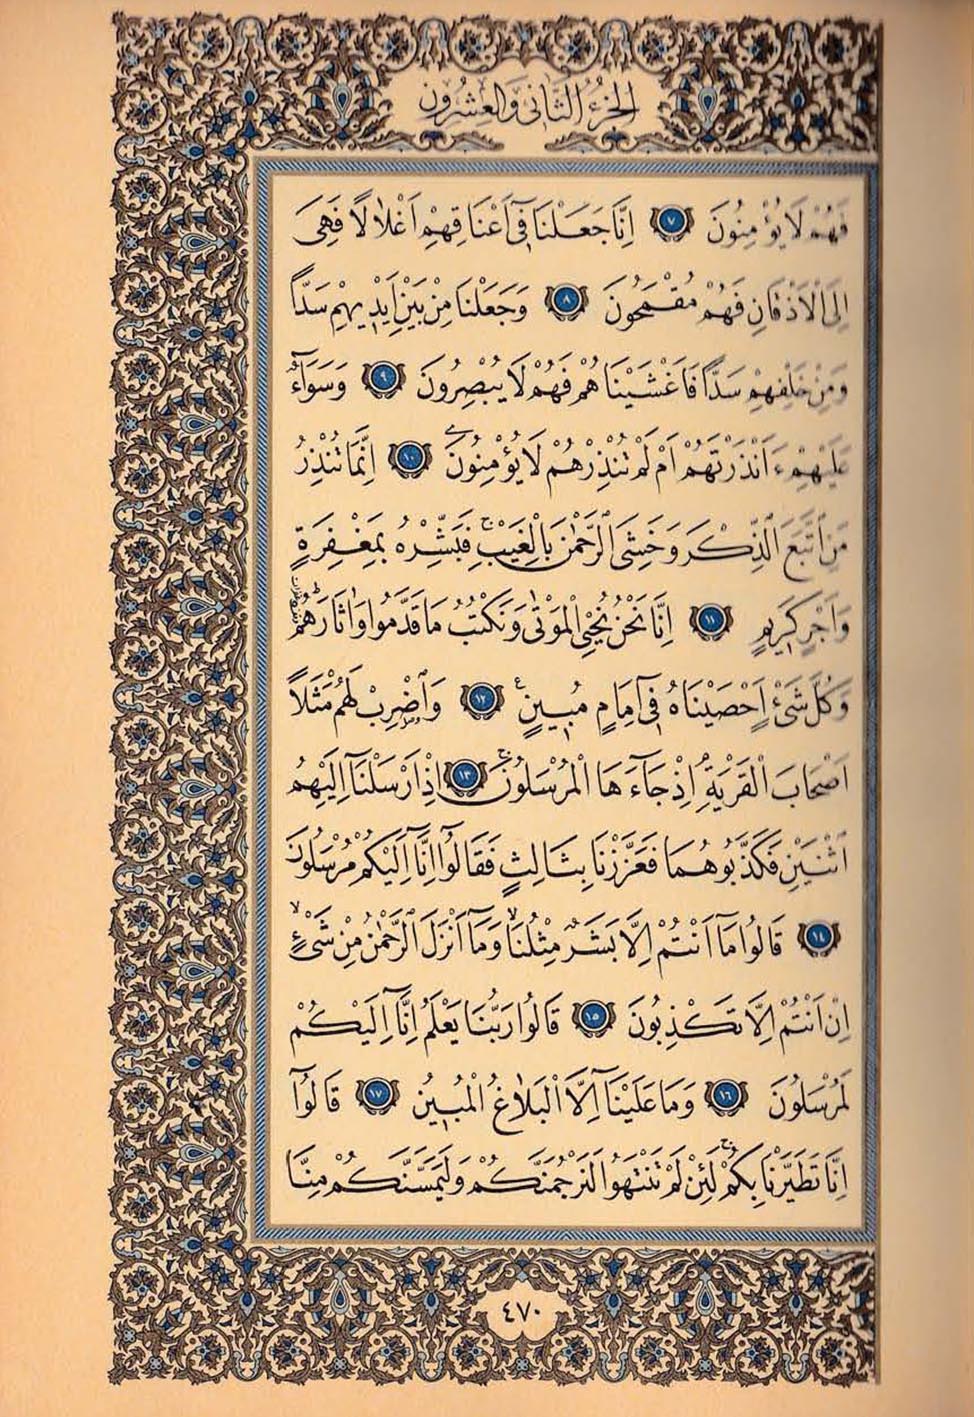 الجزء الثانى والعشرون
فَهُمْ لَا يُؤْمِنُونَ ٧ اِنَّا جَعَلْنَا فٖٓى اَعْنَاقِهِمْ اَغْلَالًا فَهِىَ
اِلَى الْاَذْقَانِ فَهُمْ مُقْمَحُونَ ٨ وَجَعَلْنَا مِنْ بَيْنِ اَيْدٖيهِمْ سَدًّا
وَمِنْ خَلْفِهِمْ سَدًّا فَاَغْشَيْنَاهُمْ فَهُمْ لَا يُبْصِرُونَ ٩ وَسَوَٓاءٌ
عَلَيْهِمْ ءَاَنْذَرْتَهُمْ اَمْ لَمْ تُنْذِرْهُمْ لَا يُؤْمِنُونَ ١٠ اِنَّمَا تُنْذِرُ
مَنِ اتَّبَعَ الذِّكْرَ وَخَشِىَ الرَّحْمٰنَ بِالْغَيْبِۚ فَبَشِّرْهُ بِمَغْفِرَةٍ
وَاَجْرٍ كَرٖيمٍ ١١ اِنَّا نَحْنُ نُحْيِى الْمَوْتٰى وَنَكْتُبُ مَا قَدَّمُوا وَاٰثَارَهُمْؕ
وَكُلَّ شَىْءٍ اَحْصَيْنَاهُ فٖٓى اِمَامٍ مُبٖينٍ ١٢ وَاضْرِبْ لَهُمْ مَثَلًا
اَصْحَابَ الْقَرْيَةِۘ اِذْ جَٓاءَهَا الْمُرْسَلُونَۚ ١٣ اِذْ اَرْسَلْنَٓا اِلَيْهِمُ
اثْنَيْنِ فَكَذَّبُوهُمَا فَعَزَّزْنَا بِثَالِثٍ فَقَالُٓوا اِنَّٓا اِلَيْكُمْ مُرْسَلُونَ
١٤ قَالُوا مَٓا اَنْتُمْ اِلَّا بَشَرٌ مِثْلُنَاۙ وَمَٓا اَنْزَلَ الرَّحْمٰنُ مِنْ شَىْءٍۙ
اِنْ اَنْتُمْ اِلَّا تَكْذِبُونَ ١٥ قَالُوا رَبُّنَا يَعْلَمُ اِنَّٓا اِلَيْكُمْ
لَمُرْسَلُونَ ١٦ وَمَا عَلَيْنَٓا اِلَّا الْبَلَاغُ الْمُبٖينُ ١٧ قَالُٓوا
اِنَّا تَطَيَّرْنَا بِكُمْۚ لَئِنْ لَمْ تَنْتَهُوا لَنَرْجُمَنَّكُمْ وَلَيَمَسَّنَّكُمْ مِنَّا
٤٧٠